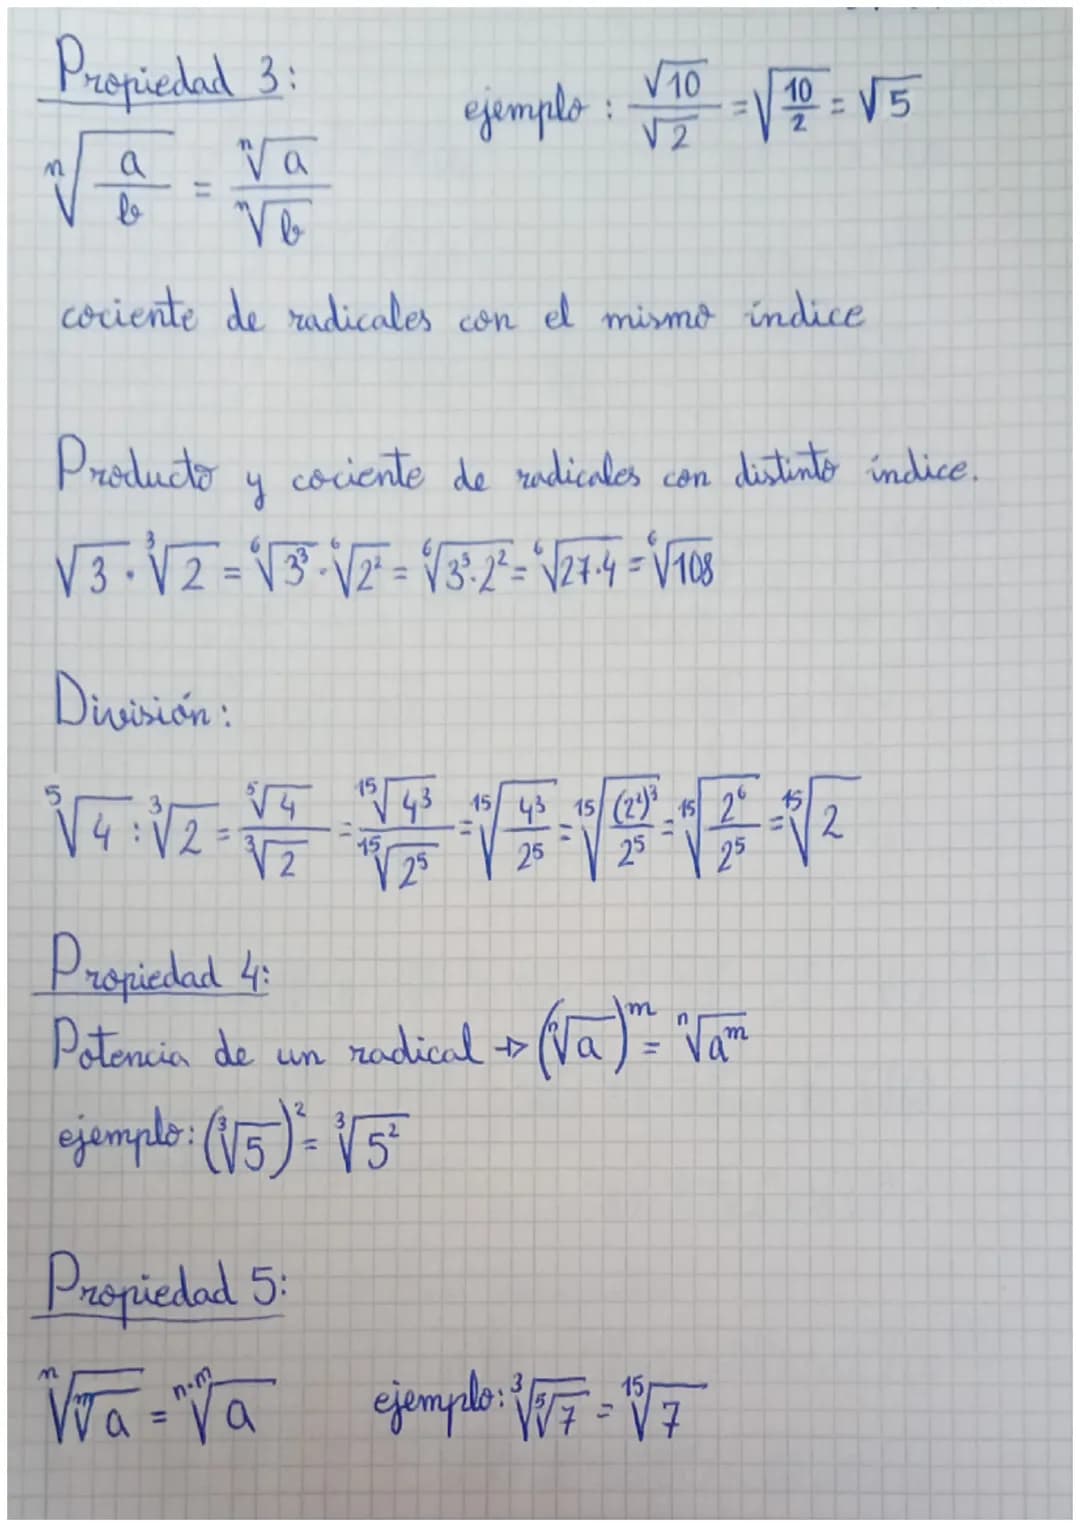 Propiedad 3:
ejemplo: √10/√2 = √(10/2) = √5
ⁿ√(a/b) = ⁿ√a/ⁿ√b
cociente de radicales con el mismo índice
Producto y cociente de radicales con distinto índice.
√3 · ³√2 = ⁶√3³ · ⁶√2² = ⁶√(3³·2²) = ⁶√(27·4) = ⁶√108
División:
⁵√4 : ³√2 = ⁵√4/³√2 = ¹⁵√4³/¹⁵√2⁵ = ¹⁵√(4³/2⁵) = ¹⁵√((2²)³/2⁵) = ¹⁵√(2⁶/2⁵) = ¹⁵√2
Propiedad 4:
Potencia de un radical → (ⁿ√a)ᵐ = ⁿ√aᵐ
ejemplo: (³√5)² = ³√5²
Propiedad 5:
ⁿ√ᵐ√a = ⁿ·ᵐ√a
ejemplo: ³√⁵√7 = ¹⁵√7